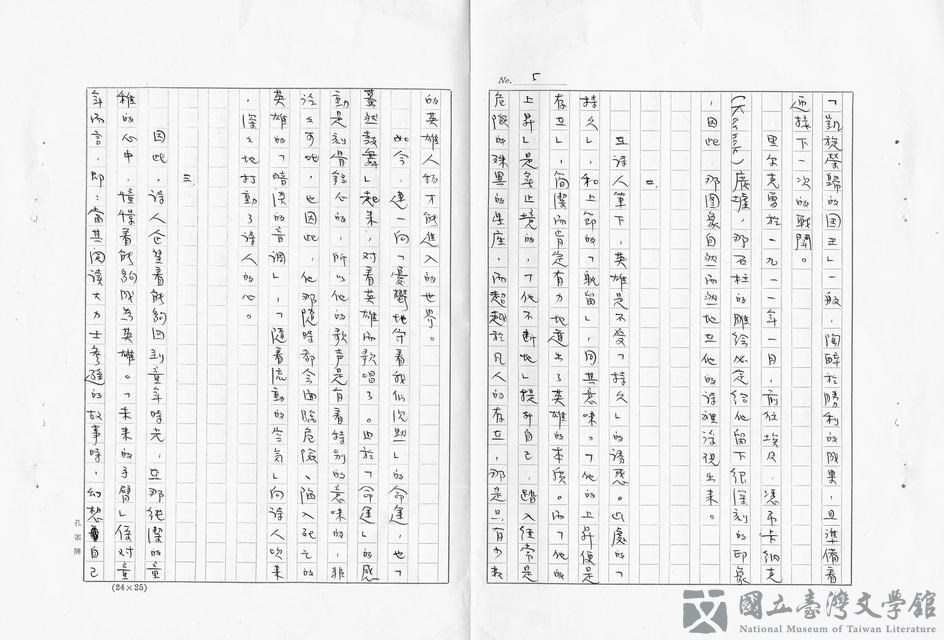 No. 5
「凱旋榮歸的国王」一般，陶醉於勝利的成果，且準備着
迎接下一次的戰鬪。
里尔克曾於一九一一年一月，前往埃及，憑吊卡納克
(Karnak)廢墟，那石柱的雕绘必定给他留下很深刻的印象
，因此，那图象自然而然地在他的詩裡浮现出来。
二
在詩人筆下，英雄是不受「持久」的誘惑。此處的「
持久」，和上節的「躭留」，同其意味。「他的上昇便是
存在」，简潔而肯定有力地道出了英雄的本质。而「他的
上昇」是無止境的，「他不断地」提昇自己，踏入经常是
危險的殊異的星座，而超越於凡人的存在，那是只有少数
的英雄人物才能進入的世界。
如今，連一向「憂鬱地守着我们沉默」的命運，也「
驀然鼓舞」起来，对着英雄而歌唱了。由於「命運」的感
動是刻骨銘心的，所以他的歌声是有着特别的意味的，非
比，也因此，他那隨時都会面臨危險、陷入死亡的
英雄的「暗淡的音調」，「隨着流動的空気」向詩人吹来
，深深地打動了詩人的心。
三
因此，詩人企望着能夠回到童年時光，在那純潔的童
稚的心中，憧憬着能夠成為英雄。「未来的手臂」係对童
年而言，即：當其閱讀大力士參孫的故事時，幻想着自己
孔雀牌
(24×25)
國立臺灣文學館
National Museum of Taiwan Literature